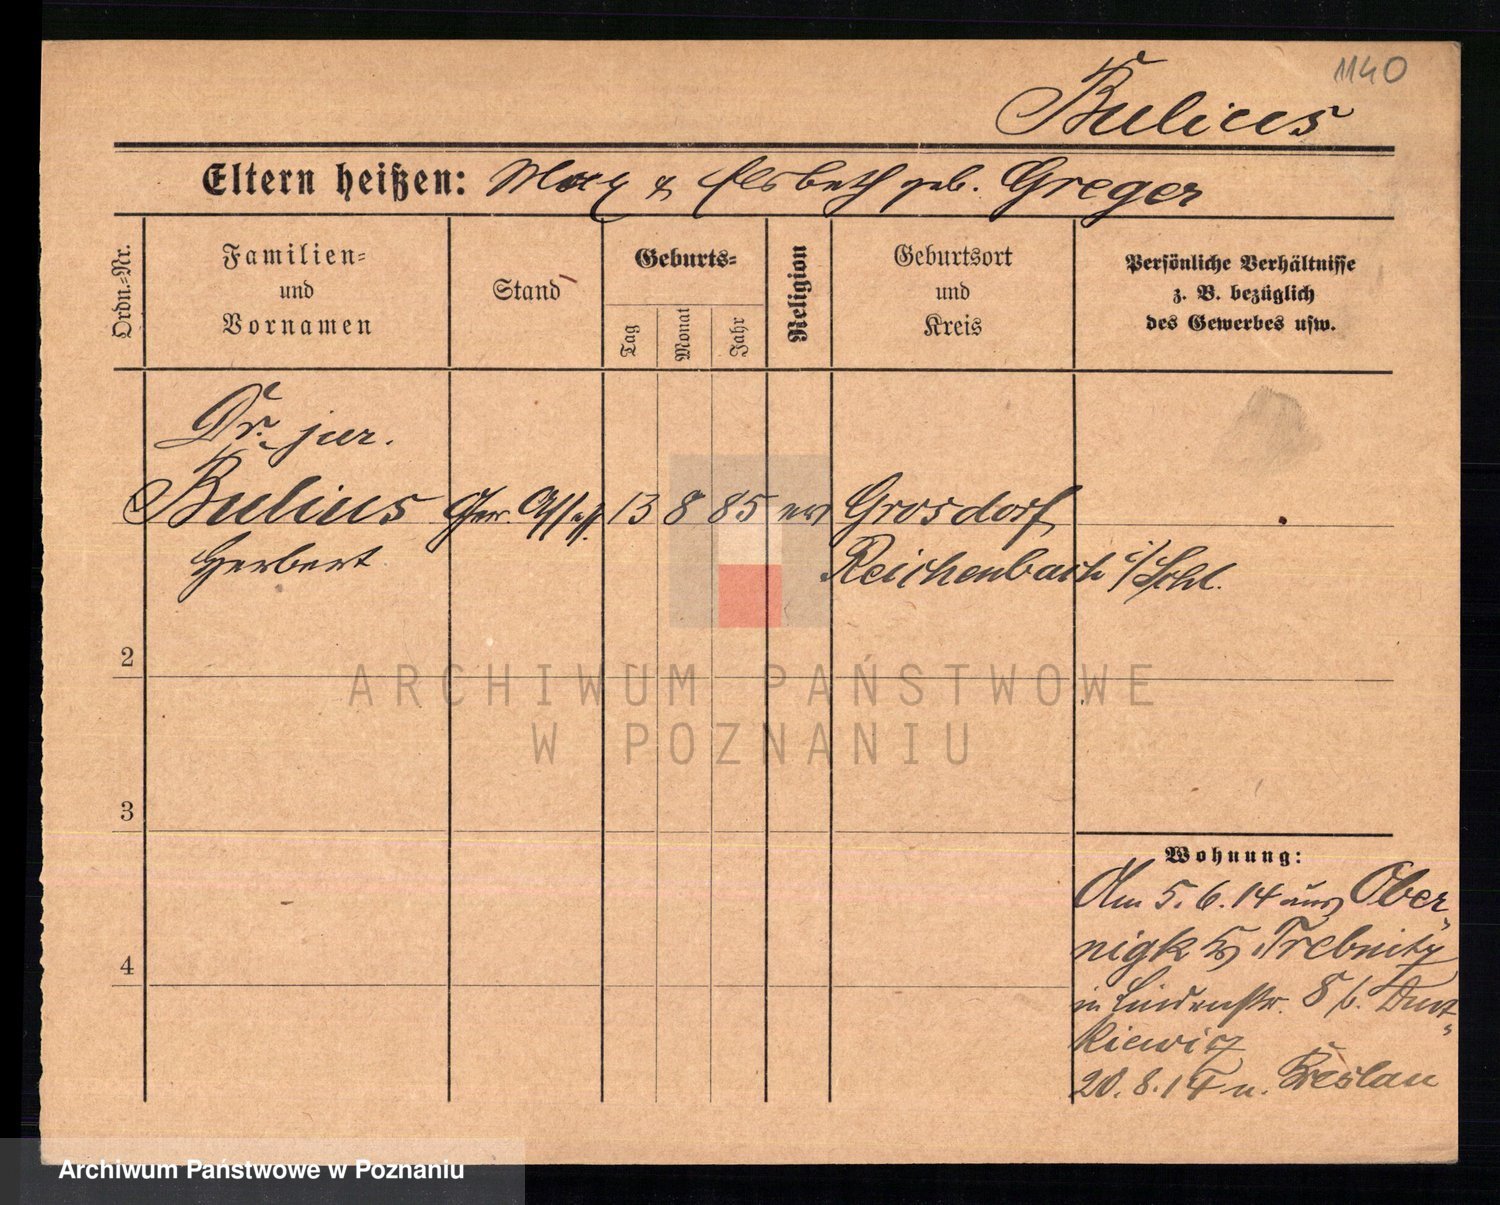 1140
Bulius
Eltern heißen: Max & Elsbeth geb. Greger
Ordn.-Nr.
Familien-
und
Vornamen
Stand
Geburts-
Tag
Monat
Jahr
Religion
Geburtsort
und
Kreis
Persönliche Verhältnisse
z. B. bezüglich
des Gewerbes usw.
Dr. jur.
Bulius Ger. Assess. 13 8 85 ev Grosdorf
Herbert Reichenbach i/Schl.
2
3
4
Wohnung:
Am 5.6.14 aus Ober-
nigk Trebnitz
in Lindenstr. 8 b.
kiewicz
20.8.14 n. Breslau
ARCHIWUM PAŃSTWOWE
W POZNANIU
Archiwum Państwowe w Poznaniu